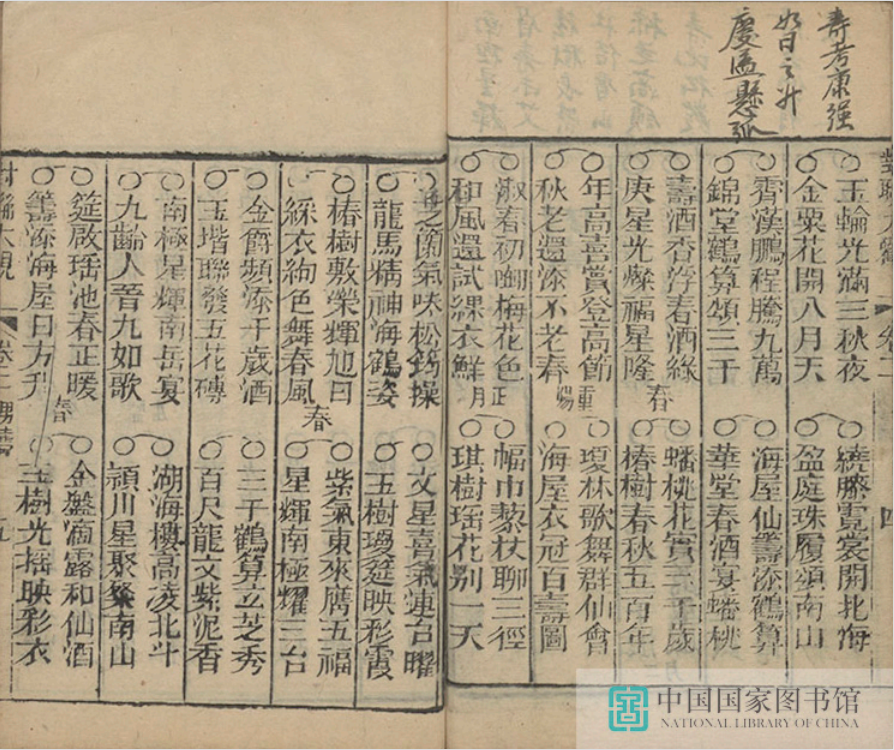 寿考康强
如日之升
慶 懸弧
四
玉輪光滿三秋夜
金粟花開八月天
霄漢鵬程騰九萬
錦堂鶴算頌三千
壽酒香浮春酒綠
春
庚星光燦福星隆
年高喜賞登高節
重陽
秋老還添不老春
淑春初啣梅花色
正月
和風還試綵衣鮮
繞膝霓裳開北海
盈庭珠履頌南山
海屋仙籌添鶴算
華堂春酒宴蟠桃
蟠桃花實三千歲
椿樹春秋五百年
瓊林歌舞群仙會
海屋衣冠百壽圖
幅巾藜杖聊三徑
琪樹瑶花别一天
芝蘭氣味松筠操
龍馬精神海鶴姿
椿樹敷榮輝旭日
春
綵衣絢色舞春風
金爵頻添千歲酒
玉堦聯發五花磚
南極星輝南岳宴
九齡人晉九如歌
筵啟瑶池春正暖
春
籌添海屋日方升
文星喜氣連台曜
玉樹瓊筵映彩霞
紫氣東來膺五福
星輝南極耀三台
三千鶴算立芝秀
百尺龍文紫泥香
湖海樓高凌北斗
潁川星聚 南山
金盤滴露和仙酒
玉樹光摇映彩衣
中国国家图书馆
NATIONAL LIBRARY OF CHINA